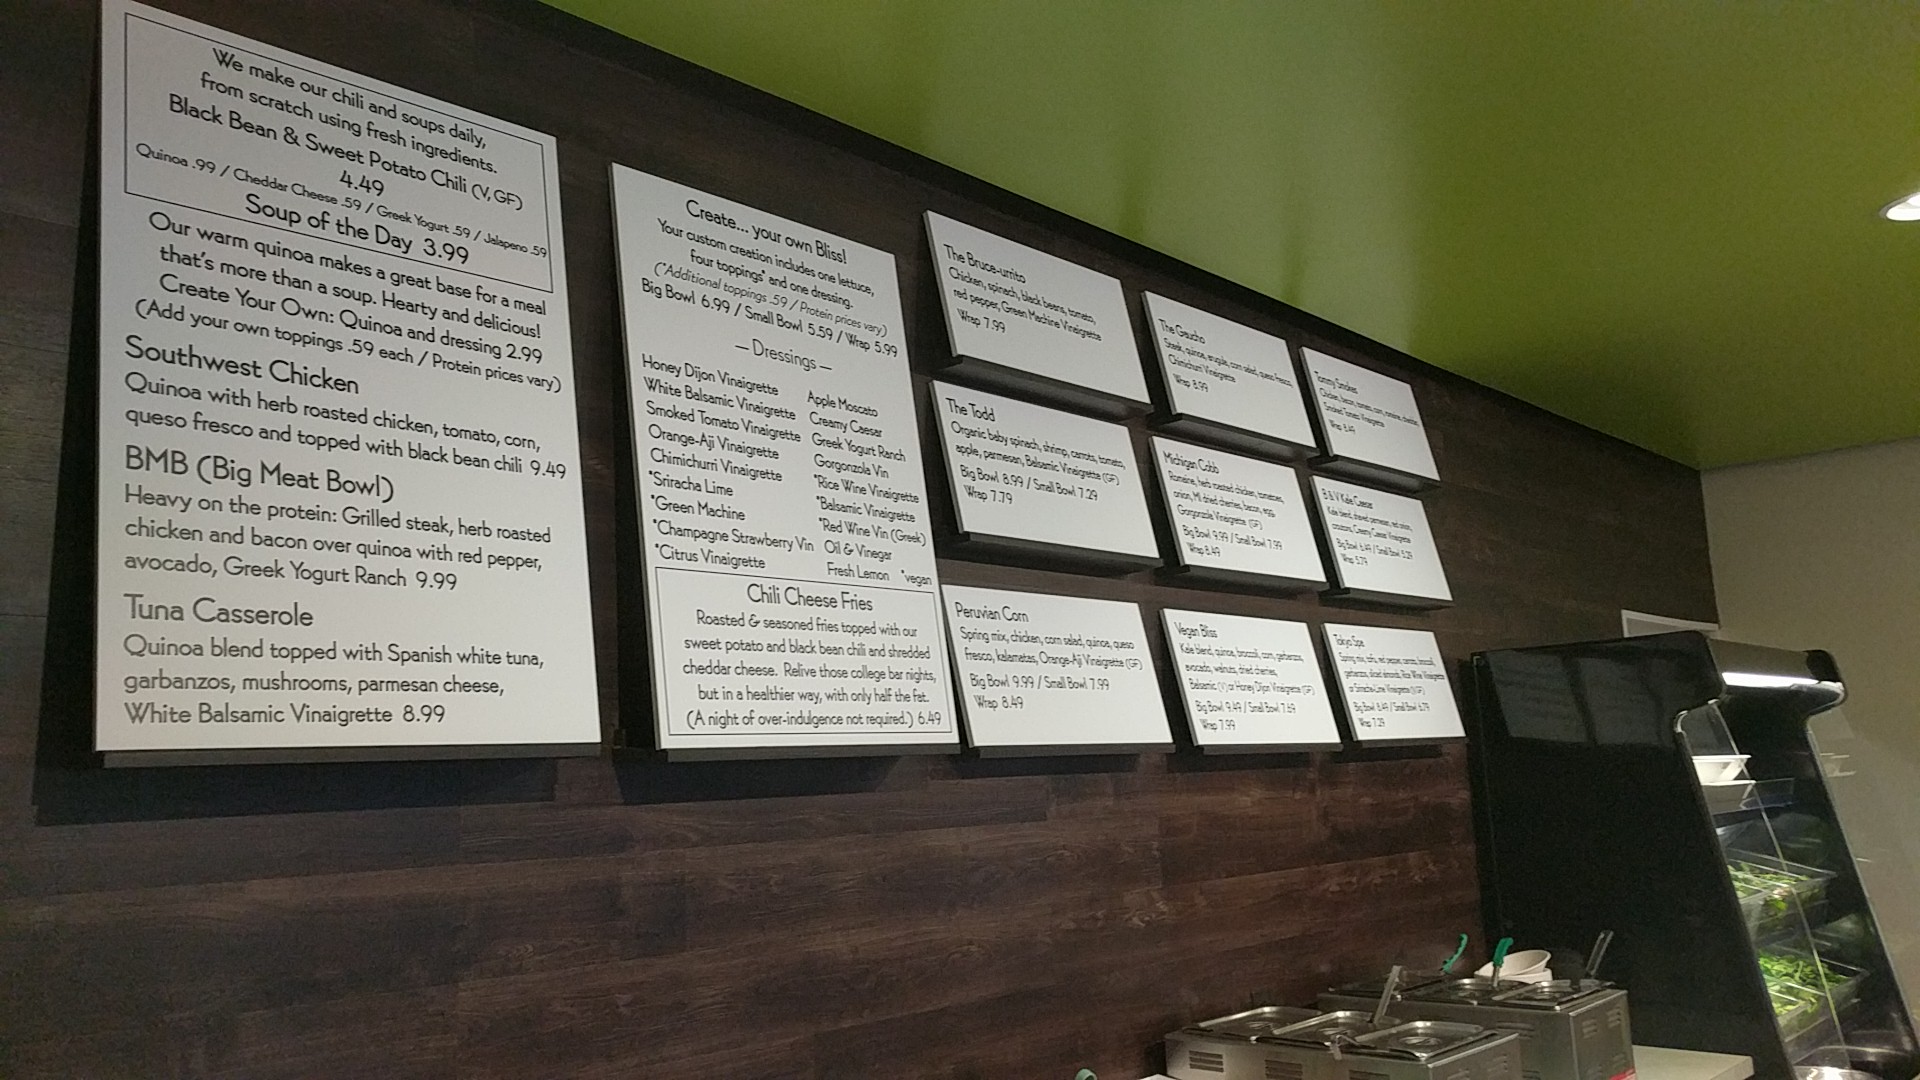 We make our chili and soups daily,
from scratch using fresh ingredients.
Black Bean & Sweet Potato Chili (V, GF)
4.49
Quinoa .99 / Cheddar Cheese .59 / Greek Yogurt .59 / Jalapeno .59
Soup of the Day 3.99
Our warm quinoa makes a great base for a meal
that's more than a soup. Hearty and delicious!
Create Your Own: Quinoa and dressing 2.99
(Add your own toppings .59 each / Protein prices vary)
Southwest Chicken
Quinoa with herb roasted chicken, tomato, corn,
queso fresco and topped with black bean chili 9.49
BMB (Big Meat Bowl)
Heavy on the protein: Grilled steak, herb roasted
chicken and bacon over quinoa with red pepper,
avocado, Greek Yogurt Ranch 9.99
Tuna Casserole
Quinoa blend topped with Spanish white tuna,
garbanzos, mushrooms, parmesan cheese,
White Balsamic Vinaigrette 8.99
Create... your own Bliss!
Your custom creation includes one lettuce,
four toppings* and one dressing.
(*Additional toppings .59 / Protein prices vary)
Big Bowl 6.99 / Small Bowl 5.59 / Wrap 5.99
— Dressings —
Honey Dijon Vinaigrette
White Balsamic Vinaigrette
Smoked Tomato Vinaigrette
Orange-Aji Vinaigrette
Chimichurri Vinaigrette
*Sriracha Lime
*Green Machine
*Champagne Strawberry Vin
*Citrus Vinaigrette
Apple Moscato
Creamy Caesar
Greek Yogurt Ranch
Gorgonzola Vin
*Rice Wine Vinaigrette
*Balsamic Vinaigrette
*Red Wine Vin (Greek)
Oil & Vinegar
Fresh Lemon *vegan
Chili Cheese Fries
Roasted & seasoned fries topped with our
sweet potato and black bean chili and shredded
cheddar cheese. Relive those college bar nights,
but in a healthier way, with only half the fat.
(A night of over-indulgence not required.) 6.49
The Bruce-urrito
Chicken, spinach, black beans, tomato,
red pepper, Green Machine Vinaigrette
Wrap 7.99
The Todd
Organic baby spinach, shrimp, carrots, tomato,
apple, parmesan, Balsamic Vinaigrette (GF)
Big Bowl 8.99 / Small Bowl 7.29
Wrap 7.79
Peruvian Corn
Spring mix, chicken, corn salad, quinoa, queso
fresco, kalamatas, Orange-Aji Vinaigrette (GF)
Big Bowl 9.99 / Small Bowl 7.99
Wrap 8.49
The Gaucho
Steak, quinoa, arugula, corn salad, queso fresco,
Chimichurri Vinaigrette
Wrap 8.99
Michigan Cobb
Romaine, herb roasted chicken, tomatoes,
onion, MI dried cherries, bacon, egg,
Gorgonzola Vinaigrette (GF)
Big Bowl 9.99 / Small Bowl 7.99
Wrap 8.49
Vegan Bliss
Kale blend, quinoa, broccoli, corn, garbanzos,
avocado, walnuts, dried cherries,
Balsamic (V) or Honey Dijon Vinaigrette (GF)
Big Bowl 9.49 / Small Bowl 7.69
Wrap 7.99
Tommy Smokes
Chicken, bacon, tomato, corn, romaine, cheddar,
Smoked Tomato Vinaigrette
Wrap 8.49
B & V Kale Caesar
Kale blend, shaved parmesan, red onion,
croutons, Creamy Caesar Vinaigrette
Big Bowl 6.49 / Small Bowl 5.29
Wrap 5.79
Tokyo Spa
Spring mix, tofu, red pepper, carrots, broccoli,
garbanzos, sliced almonds, Rice Wine Vinaigrette
or Sriracha Lime Vinaigrette
Big Bowl 8.49 / Small Bowl 6.79
Wrap 7.29